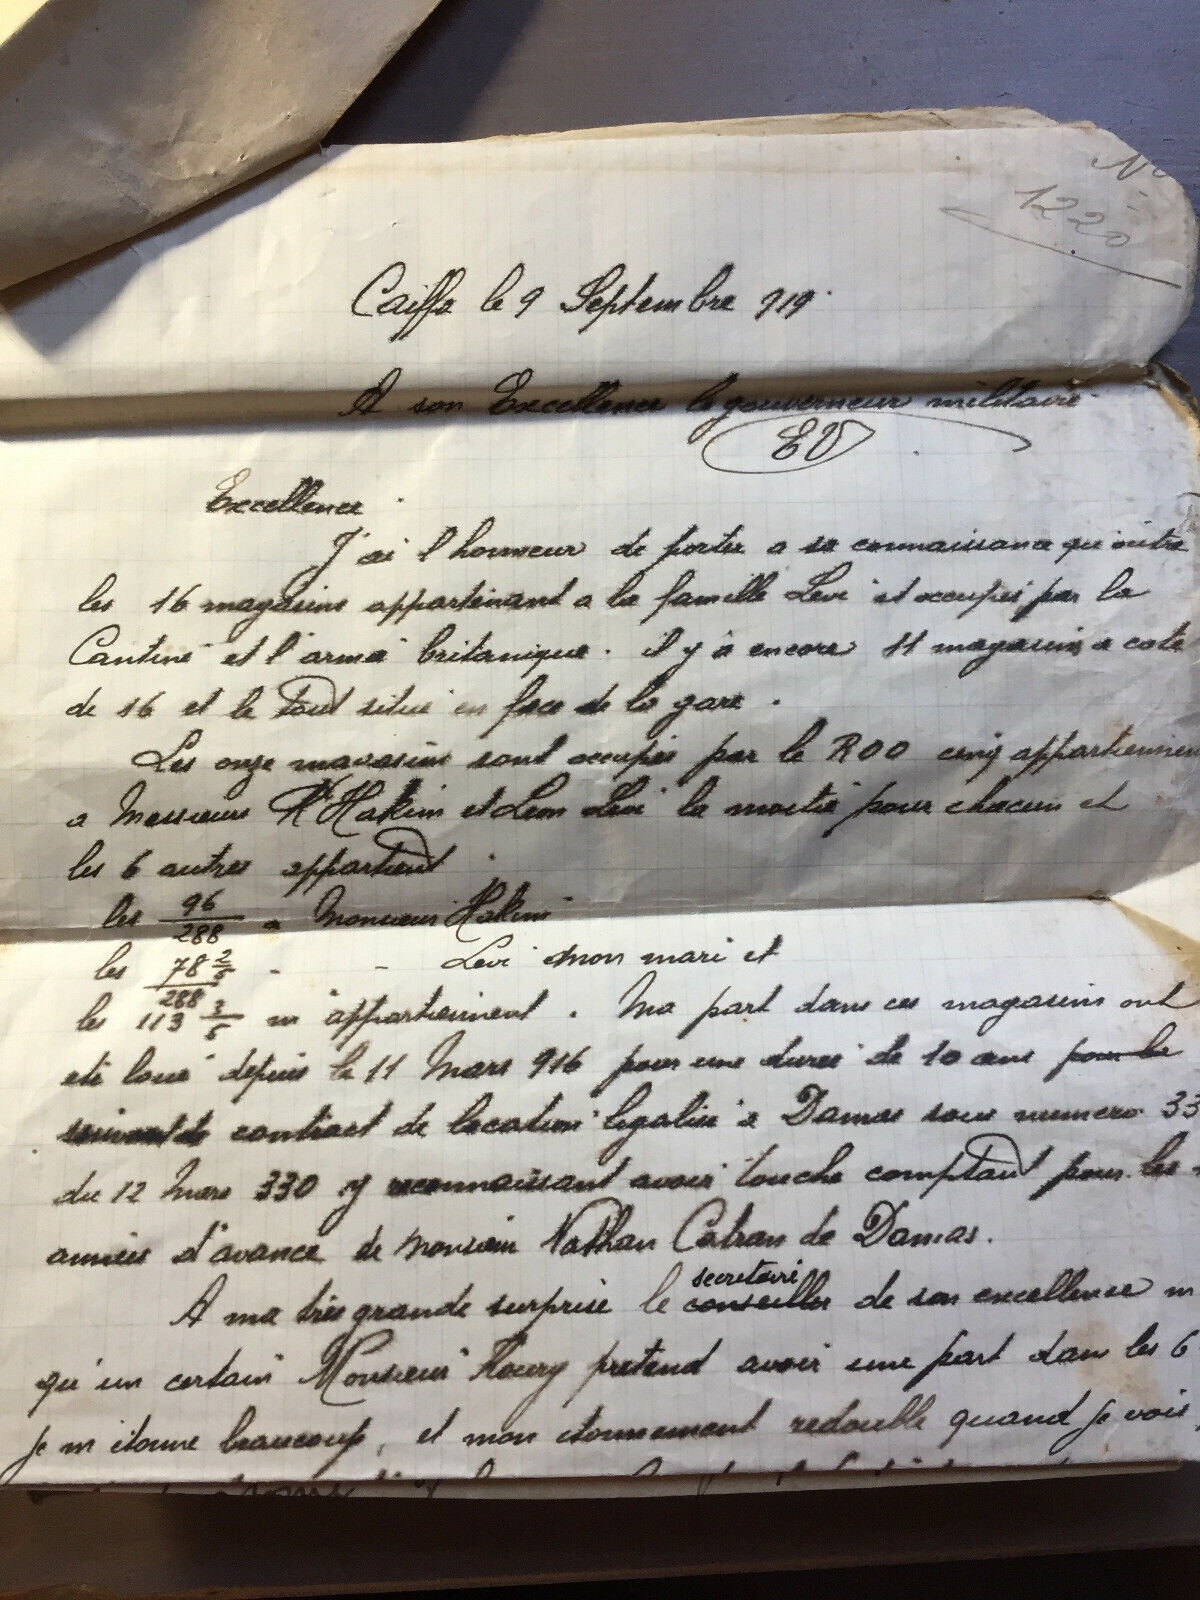 No
1220
Caiffa le 9 Septembre 919.
A son Excellence le gouverneur militaire
EV
Excellence.
J'ai l'honneur de porter a sa connaissance qu'outre
les 16 magasins appartenant a la famille Levi et occupés par la
Cantine et l'armé britanique. il y a encore 11 magasins a coté
de 16 et le tout situé en face de la gare.
Les onze magasins sont occupés par le ROO cinq appartiennen
a Messieurs Hakim et Leon Levi la moitié pour chacun et
les 6 autres appartient
les 96/288 a Monsieur Hakim
les 78 2/5 /288 - - Levi mon mari et
les 113 3/5 m'appartiennent. Ma part dans ces magasins ont
eté loué depuis le 11 Mars 916 pour une durée de 10 ans pour les
suivant contract de location legalisé a Damas sous numero 33
du 12 Mars 330 y reconnaissant avoir touché comptant pour les
années d'avance de Monsieur Nathan Catran de Damas.
secretaire
A ma très grande surprise le conseiller de son excellence m
qu'un certain Monsieur Houry pretend avoir une part dans les 6
je m'étonne beaucoup, et mon etonnement redouble quand je vois